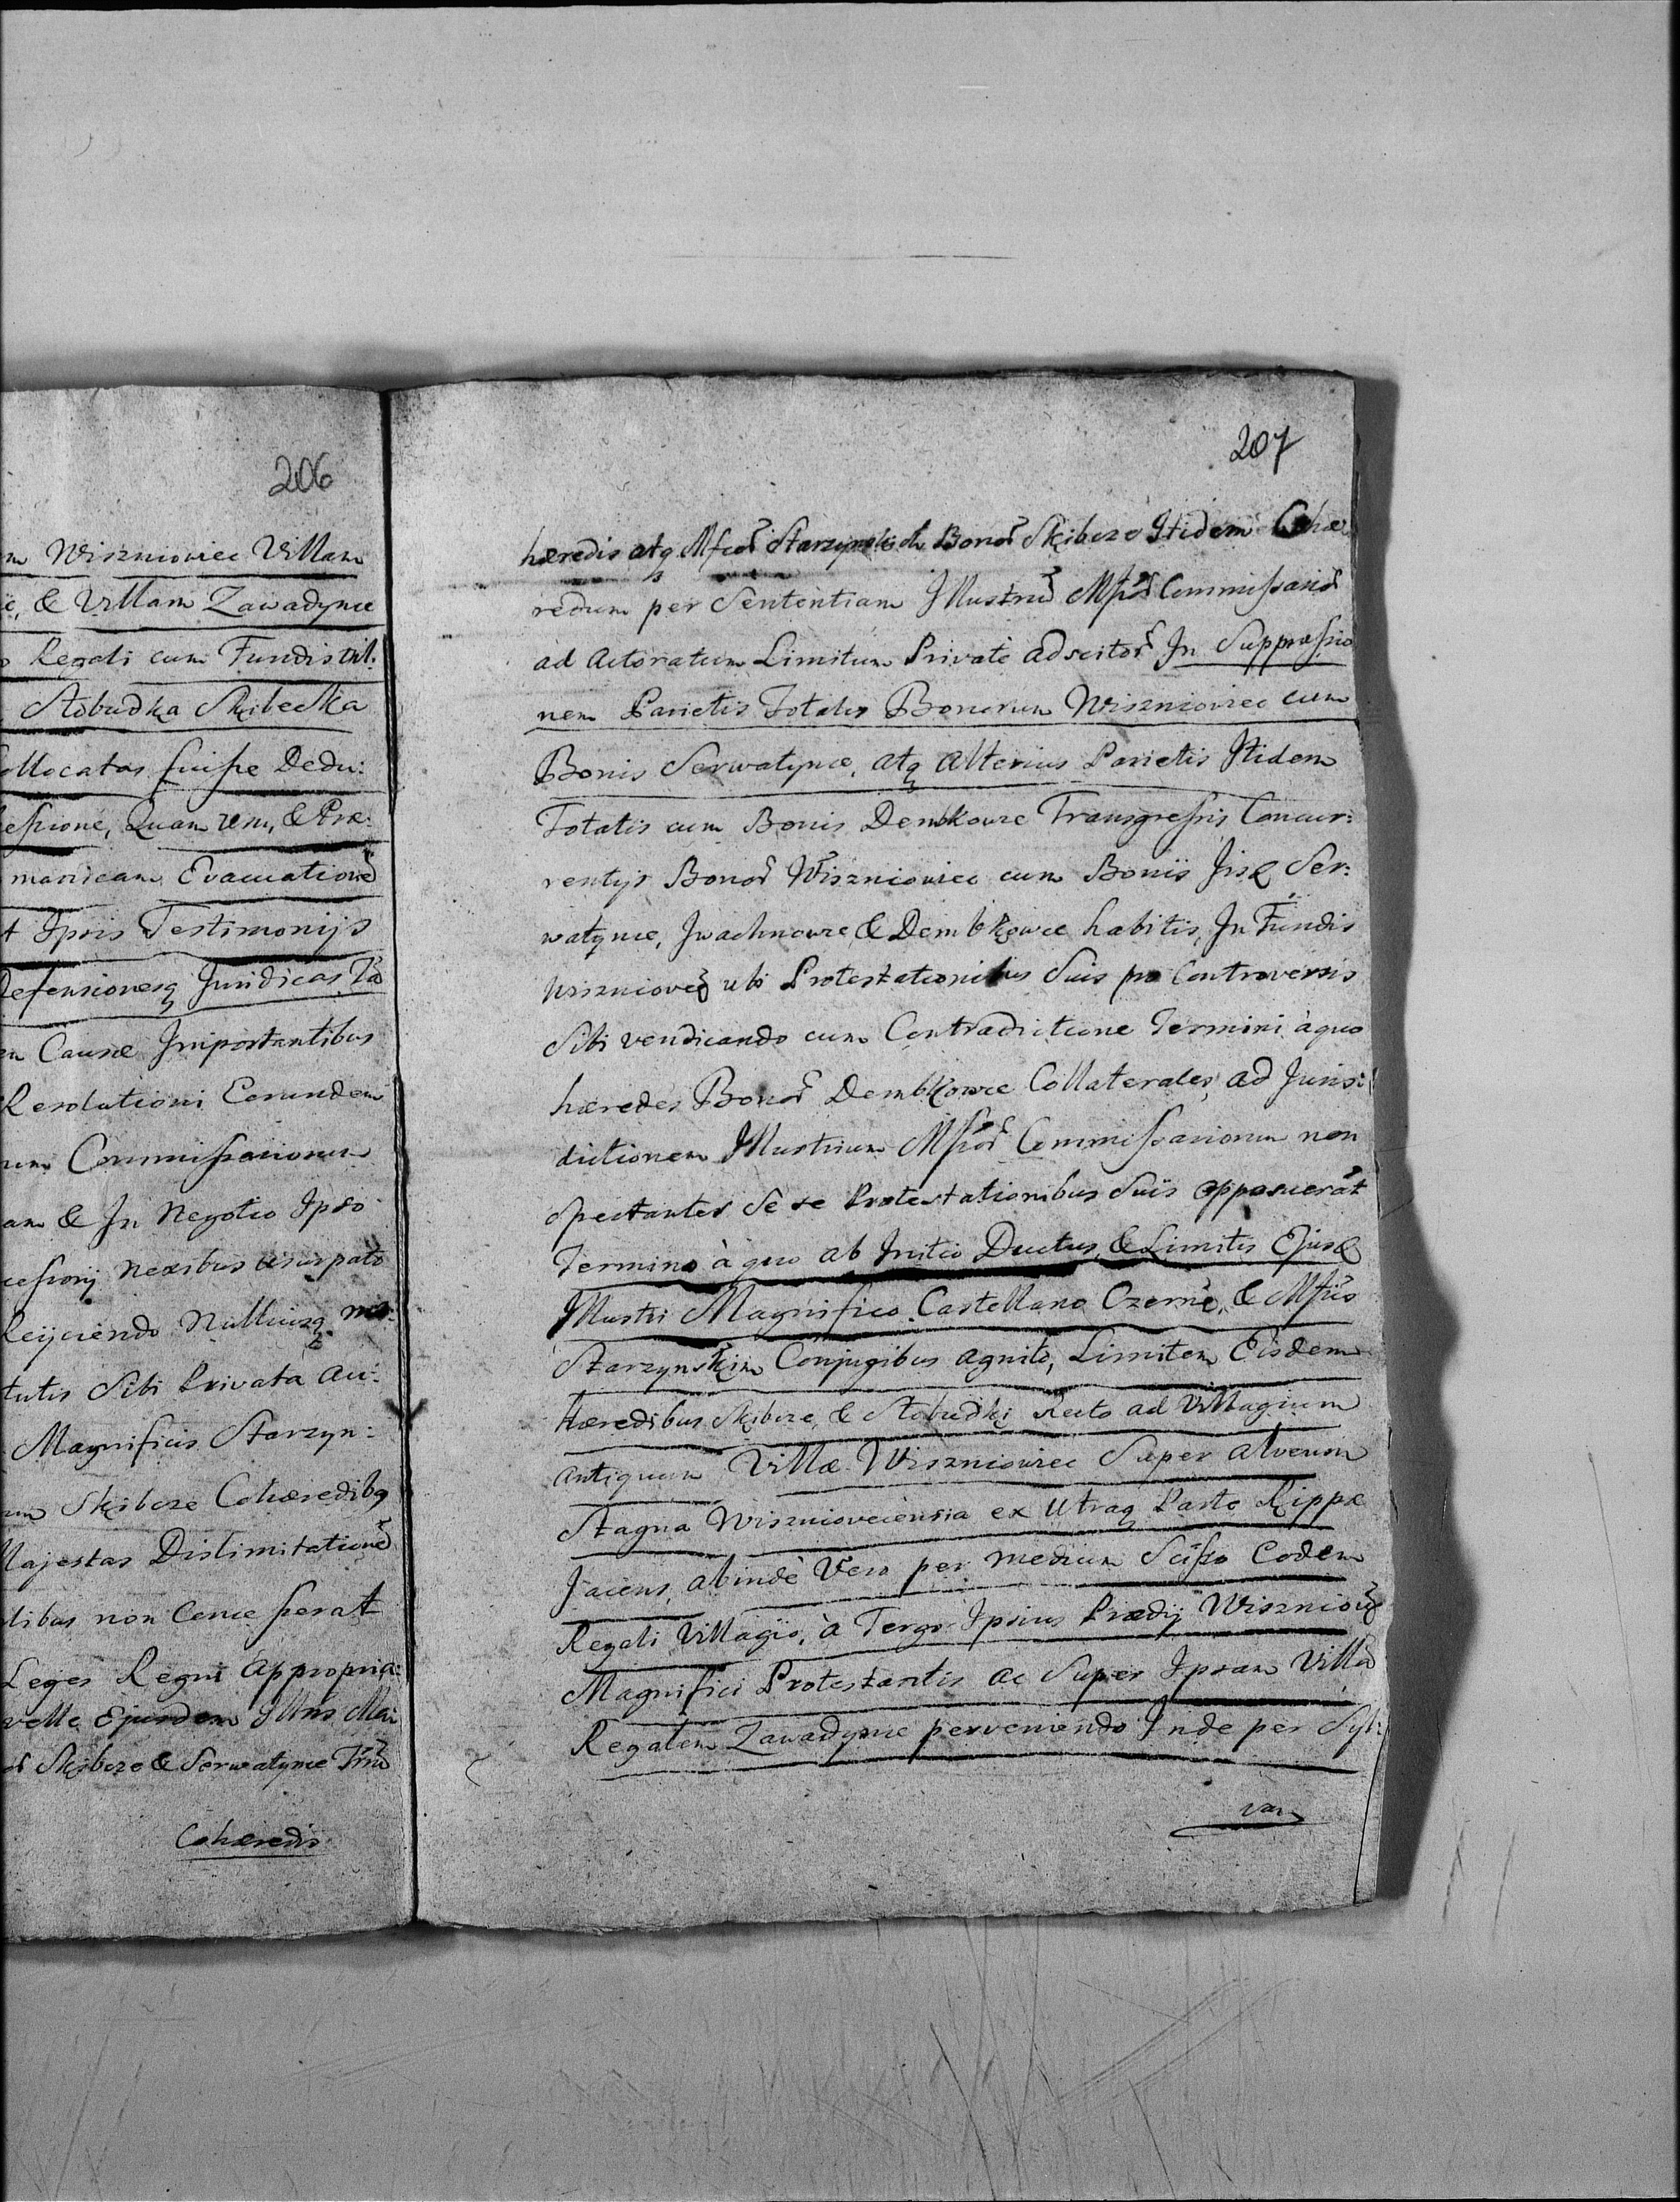 206
m Wiszniowiec Villam
ic, & Villam Zawadynce
o Regali cum Fundis
Slobudka Skibecka
ollocatas fuisse Dedu:
essione, Quam rem, & Præ:
maricam Evacuatione
t Ipsis Testimonijs
Defensionesq Juridicas
en Causæ Importantibus
Resolutioni Eorundem
rum Commissariorum
am & In Negotio Ipso
cessorij Nexibus usurpato
Reijciendo Nulliusq
tutis Sibi Privata Au:
Magnificis Starzyn:
um Skibcze Cohæredibq
Majestas Dislimitatione
libus non Cence serat
Leges Regni appropria:
velle Ejusdem
Skibcze & Serwatynce
Cohæredis
207
hæredis atq Mfcor Starzynskich Bonor Skibcze Itidem Cohæ
redum per Sententiam Illustriu Mfcor Commissarior
ad Actoratum Limitum Privatè adscitor In Suppressio
nem Parietis Totalis Bonorum Wiszniowiec cum
Bonis Serwatynce, atq Alterius Parietis Itidem
Totalis cum Bonis Dembkowce Transgressis Concur:
rentijs Bonor Wiszniowiec cum Bonis Jisq Ser:
watynce, Jwachnowce & Dembkowce habitis, In Fundis
Wisznioveci ubi Protestationibus Suis pro Controversis
Sibi vendicando cum Contradictione Termini à quo
hæredes Bonor Dembkowce Collaterales, ad Juris:
dictionem Illustrium Mfcor Commissariorum non
Spectantes Se se Protestationibus Suis opposuerat
Termino à quo ab Initio Ductus & Limitis Ejusq
Illustri Magnifico Castellano Czerne, & Mfcis
Starzynskim Conjugibus agnito, Limitem Eisdem
Hæredibus Skibcze & Slobudki Recto ad Villagium
antiquum Villæ Wiszniowiec Super alveum
Stagna Wiszniovecensia ex Utraq Parte Rippæ
Jaciens, abindè Vero per medium Scisso Eodem
Regali Villagio, à Tergo Ipsius Prædij Wisznio
Magnifici Protestantis ac Super Ipsam Villa
Regalem Zawadynce perveniendo Inde per Syl:
vam